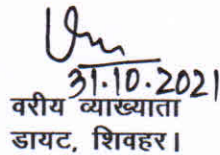 31.10.2021
वरीय व्याख्याता
डायट, शिवहर।